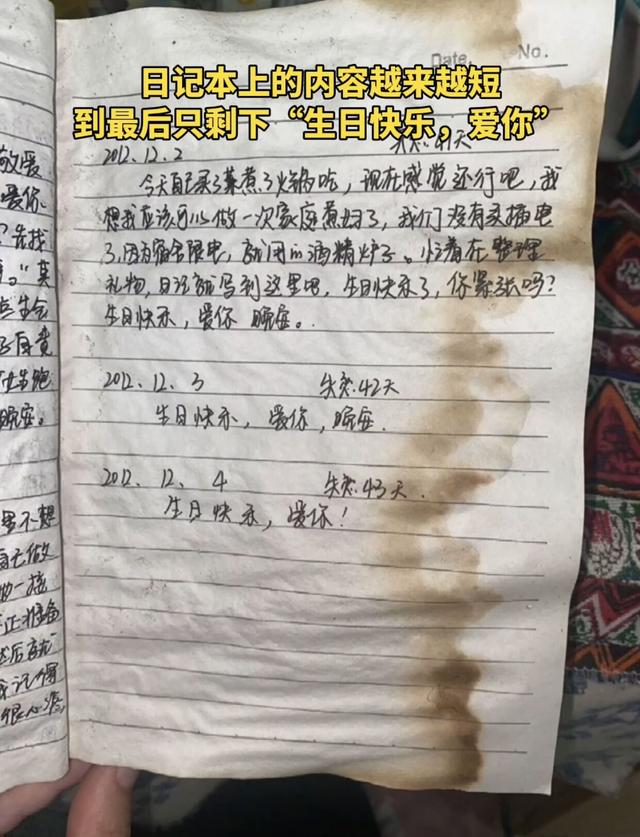 日记本上的内容越来越短
到最后只剩下“生日快乐，爱你”
Date.
No.
2012.12.2 失恋41天
今天自己买了菜煮了火锅吃，现在感觉还行吧，我
想我应该可以做一次家庭煮妇了，我们没有交插电
了，因为宿舍限电，就用in酒精炉子。忙着在整理
礼物，日记就写到这里吧，生日快乐了，你紧张吗？
生日快乐，爱你 晚安。
2012、12、3 失恋42天
生日快乐，爱你，晚安.
2012、12、4 失恋43天.
生日快乐，爱你！
爱你
先找
晚安。
不想
自己做
一接
正准备
然后就
记得